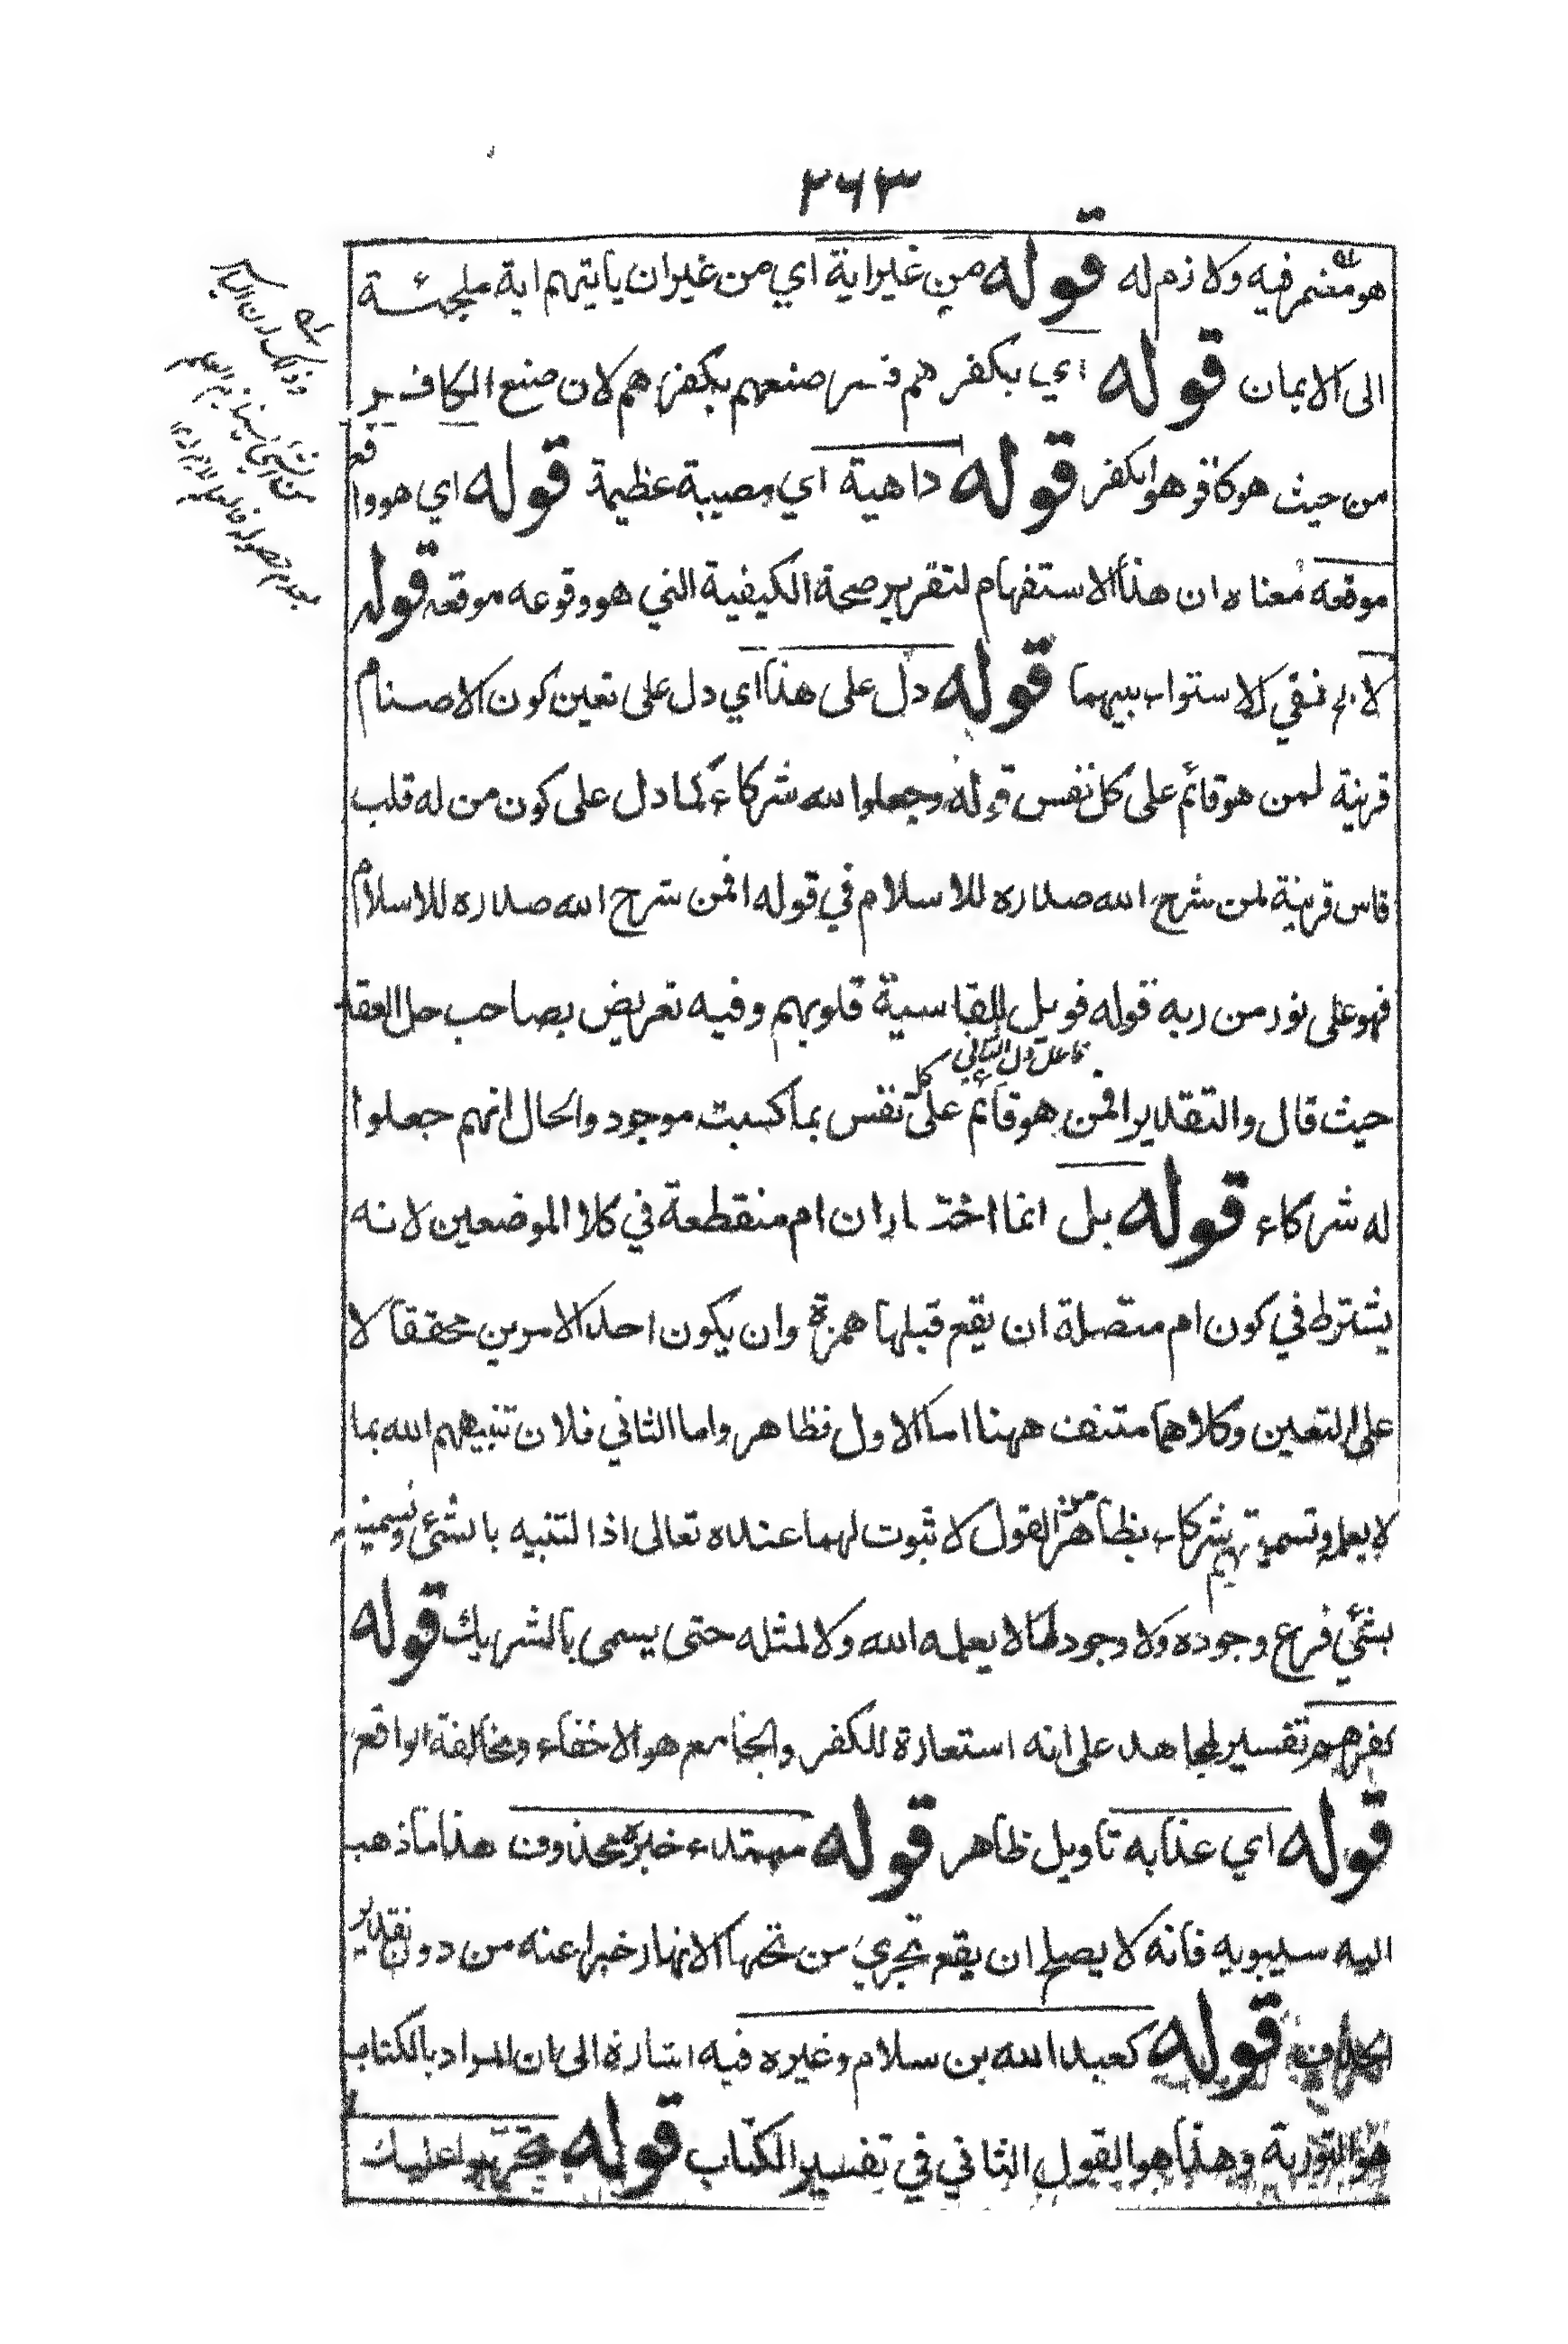 ٢٦٣
هو مضمر فيه ولازم له قوله من غير اية اي من غير ان ياتيهم اية ملجئة
الى الايمان قوله اي بكفرهم فسر صنعهم بكفرهم لان صنع الكافر
من حيث هو كافر هو الكفر قوله داهية اي مصيبة عظيمة قوله اي هو واقع
موقعه معناه ان هذا الاستفهام لتقرير صحة الكيفية التي هو وقوعه موقعه قوله
لا اي نفي الاستواء بينهما قوله دل على هذا اي دل على تعين كون الاصنام
قرينة لمن هو قائم على كل نفس قوله وجعلوا لله شركاء كما دل على كون من له قلب
قاس قرينة لمن شرح الله صدره للاسلام في قوله افمن شرح الله صدره للاسلام
فهو على نور من ربه قوله فويل للقاسية قلوبهم وفيه تعريض بصاحب حل العقد
فاعل دل الثاني
حيث قال والتقدير افمن هو قائم على كل نفس بما كسبت موجود والحال انهم جعلوا
له شركاء قوله بل انما اختار ان ام منقطعة في كلا الموضعين لانه
يشترط في كون ام متصلة ان يقع قبلها همزة وان يكون احد الامرين محققا لا
على التعين وكلاهما منتف ههنا اما الاول فظاهر واما الثاني فلان تنبيههم الله بما
لا يعلم وتسميتهم شركاء بظاهر من القول لا ثبوت لهما عنده تعالى اذ التنبيه بالشئ وتسميته
بشئ فرع وجوده ولا وجود لما لا يعلمه الله ولا لمثله حتى يسمى بالشريك قوله
كفرهم تفسير لمجاهد على انه استعارة للكفر والجامع هو الاخفاء ومخالفة الواقع
قوله اي عذابه تاويل ظاهر قوله مبتداء خبره محذوف هذا ما ذهب
اليه سيبويه فانه لا يصلح ان يقع تجري من تحتها الانهار خبرا عنه من دون تقدير
قوله كعبد الله بن سلام وغيره فيه اشارة الى ان المراد بالكتاب
هو التورية وهذا هو القول الثاني في تفسير الكتاب قوله تحزبوا عليك